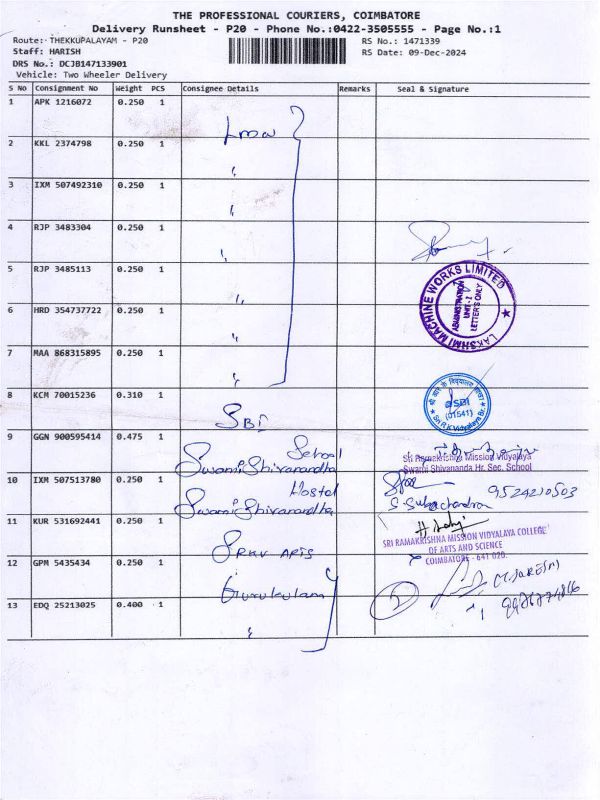 THE PROFESSIONAL COURIERS, COIMBATORE
Delivery Runsheet - P20 - Phone No.:0422-3505555 - Page No.:1
Route: THEKKUPALAYAM - P20
RS No.: 1471339
Staff: HARISH
RS Date: 09-Dec-2024
DRS No.: DCJB147133901
Vehicle: Two Wheeler Delivery
S No Consignment No Weight PCS Consignee Details Remarks Seal & Signature
1 APK 1216072 0.250 1
Lmw
2 KKL 2374798 0.250 1
"
3 IXM 507492310 0.250 1
"
4 RJP 3483304 0.250 1
"
5 RJP 3485113 0.250 1
"
LAKSHMI MACHINE WORKS LIMITED
ADMINISTRATION
UNIT-I
LETTER'S ONLY
6 HRD 354737722 0.250 1
"
7 MAA 868315895 0.250 1
"
8 KCM 70015236 0.310 1
SBI
SBI
(01541)
Sri R K Vidyalaya Br.
9 GGN 900595414 0.475 1
School
Swami Shivanandha
Sri Ramakrishna Mission Vidyalaya
Swami Shivananda Hr. Sec. School
10 IXM 507513780 0.250 1
Hostel
Swami Shivanandha
S. Subachandran 9524210503
11 KUR 531692441 0.250 1
SRKV ARTS
SRI RAMAKRISHNA MISSION VIDYALAYA COLLEGE
OF ARTS AND SCIENCE
COIMBATORE - 641 020.
12 GPM 5435434 0.250 1
Gurukulam
13 EDQ 25213025 0.400 1
"